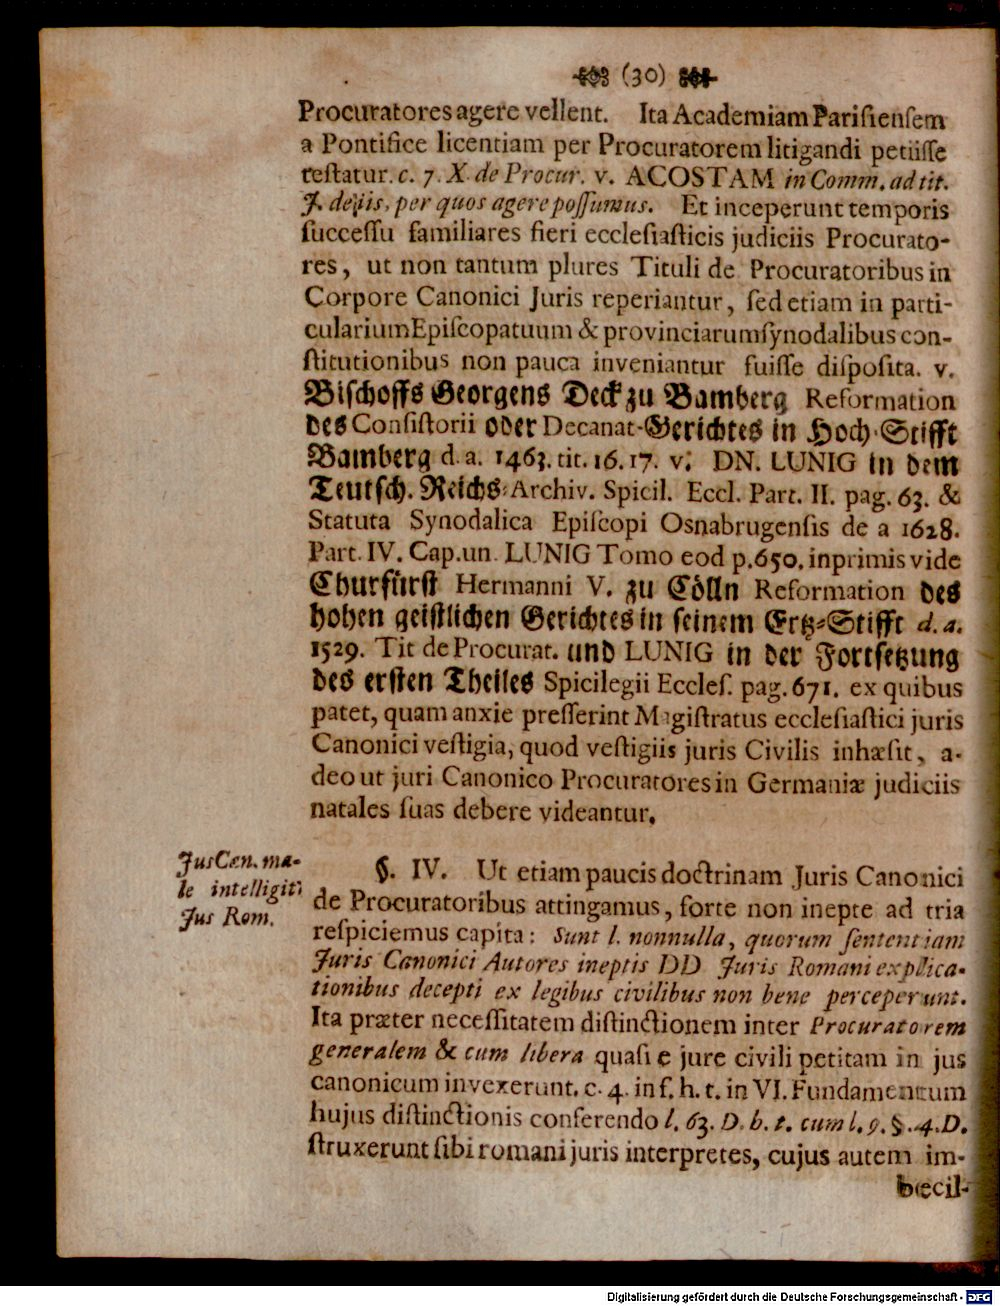 (30)
Procuratores agere vellent. Ita Academiam Parisiensem
a Pontifice licentiam per Procuratorem litigandi petiisse
testatur. c. 7. X. de Procur. v. ACOSTAM in Comm. ad tit.
J. de iis, per quos agere possumus. Et inceperunt temporis
successu familiares fieri ecclesiasticis judiciis Procurato-
res, ut non tantum plures Tituli de Procuratoribus in
Corpore Canonici Juris reperiantur, sed etiam in parti-
cularium Episcopatuum & provinciarum synodalibus con-
stitutionibus non pauca inveniantur fuisse disposita. v.
Bischoffs Georgens Deck zu Bamberg Reformation
des Consistorii oder Decanat-Gerichtes in Hoch-Stifft
Bamberg d. a. 1463. tit. 16. 17. v. DN. LUNIG in dem
Teutsch. Reichs-Archiv. Spicil. Eccl. Part. II. pag. 63. &
Statuta Synodalica Episcopi Osnabrugensis de a 1628.
Part. IV. Cap. un. LUNIG Tomo eod p. 650. inprimis vide
Churfürst Hermanni V. zu Cölln Reformation des
hohen geistlichen Gerichtes in seinem Ertz-Stifft d. a.
1529. Tit de Procurat. und LUNIG in der Fortsetzung
des ersten Theiles Spicilegii Eccles. pag. 671. ex quibus
patet, quam anxie presserint Magistratus ecclesiastici juris
Canonici vestigia, quod vestigiis juris Civilis inhæsit, a-
deo ut juri Canonico Procuratores in Germaniæ judiciis
natales suas debere videantur.
Jus Can. ma-
le intelligit
Jus Rom.
§. IV. Ut etiam paucis doctrinam Juris Canonici
de Procuratoribus attingamus, forte non inepte ad tria
respiciemus capita: Sunt l. nonnulla, quorum sententiam
Juris Canonici Autores ineptis DD Juris Romani explica-
tionibus decepti ex legibus civilibus non bene perceperunt.
Ita præter necessitatem distinctionem inter Procuratorem
generalem & cum libera quasi e jure civili petitam in jus
canonicum invexerunt. c. 4. in f. h. t. in VI. Fundamentum
hujus distinctionis conferendo l. 63. D. h. t. cum l. 9. §. 4. D.
struxerunt sibi romani juris interpretes, cujus autem im-
bœcil-
Digitalisierung gefördert durch die Deutsche Forschungsgemeinschaft - DFG